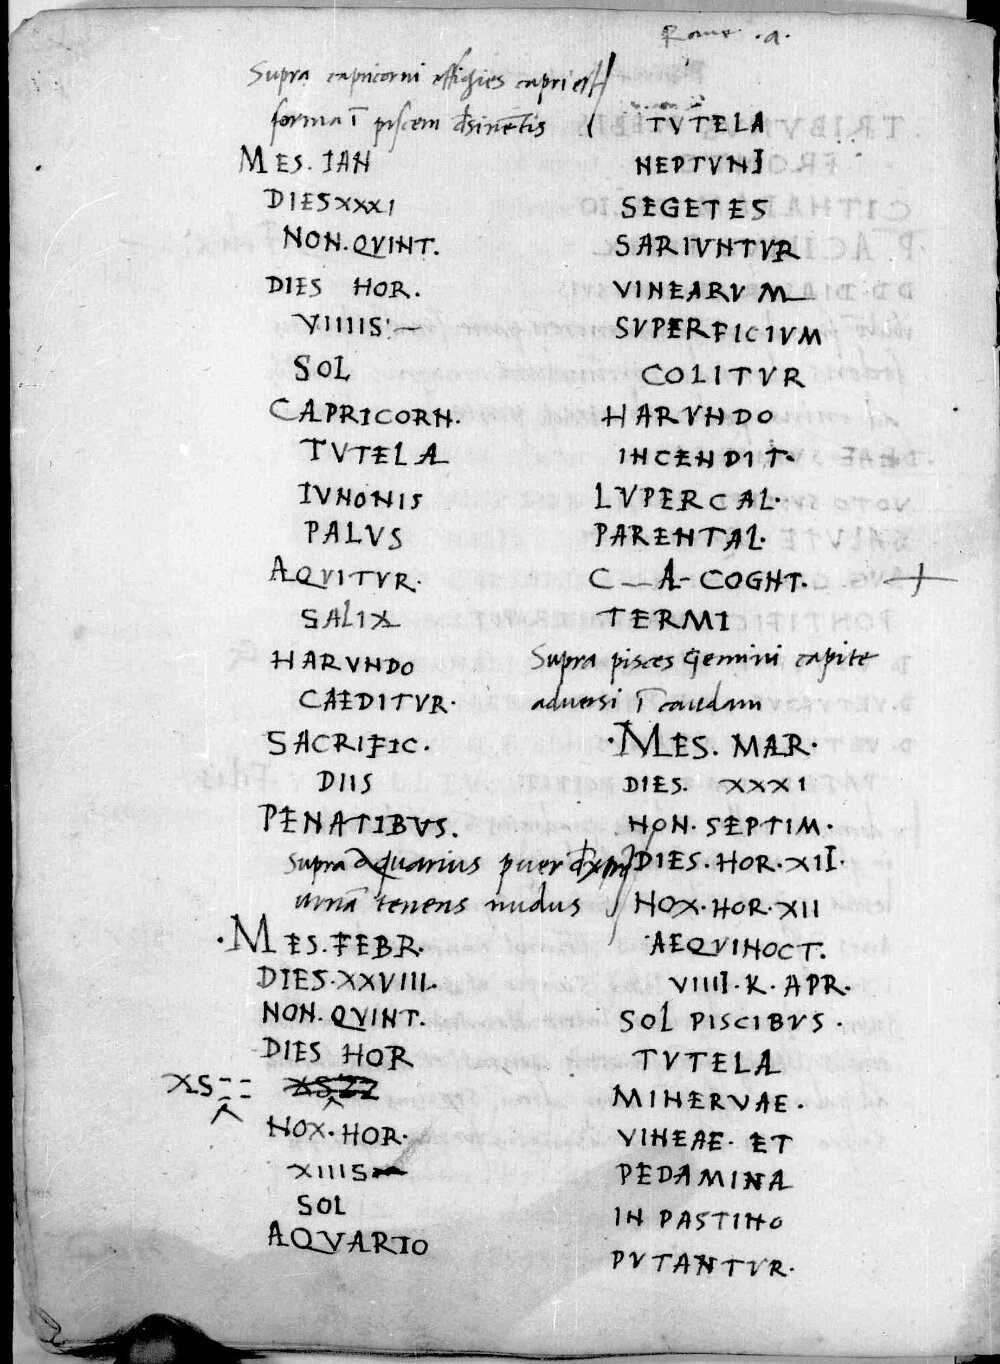 Rome .a.
Supra capricorni effigies capri est
forma ī piscem dsinētis
MES. IAN
DIES XXXI
NON. QVINT.
DIES HOR.
VIIIIS:—
SOL
CAPRICORN.
TVTELA
IVNONIS
PALVS
AQVITVR.
SALIX
HARVNDO
CAEDITVR.
SACRIFIC.
DIIS
PENATIBVS.
Supra aquarius puer
urnā tenens nudus
.MES. FEBR.
DIES. XXVIII.
NON. QVINT.
DIES HOR
XS::
NOX. HOR.
XIIIS
SOL
AQVARIO
TVTELA
NEPTVNI
SEGETES
SARIVNTVR
VINEARVM
SVPERFICIVM
COLITVR
HARVNDO
INCENDIT.
LVPERCAL.
PARENTAL.
C—A-COGNT.
TERMI
Supra pisces Gemini capite
adversi ī caudam
.MES. MAR.
DIES. XXXI
NON. SEPTIM.
DIES. HOR. XII.
NOX. HOR. XII
AEQVINOCT.
VIIII. K. APR.
SOL PISCIBVS.
TVTELA
MINERVAE.
VINEAE. ET
PEDAMINA
IN PASTINO
PVTANTVR.